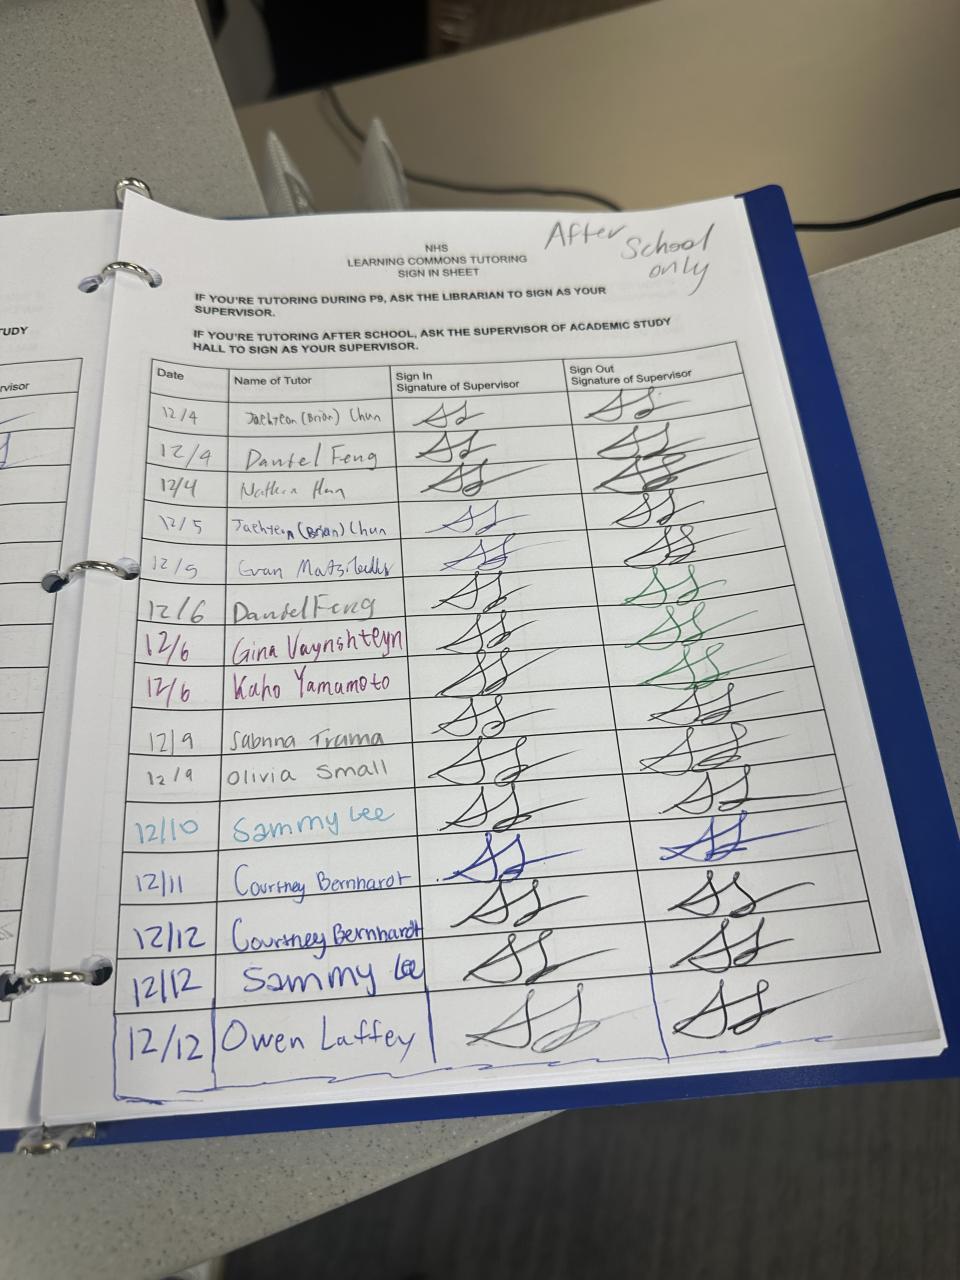 After School
only
NHS
LEARNING COMMONS TUTORING
SIGN IN SHEET
IF YOU'RE TUTORING DURING P9, ASK THE LIBRARIAN TO SIGN AS YOUR
SUPERVISOR.
IF YOU'RE TUTORING AFTER SCHOOL, ASK THE SUPERVISOR OF ACADEMIC STUDY
HALL TO SIGN AS YOUR SUPERVISOR.
Date Name of Tutor Sign In Signature of Supervisor Sign Out Signature of Supervisor
12/4 Jaehyeon (Brian) Chun
12/4 Daniel Feng
12/4 Nathan
12/5 Jaehyeon (Brian) Chun
12/5 Evan
12/6 Daniel Feng
12/6 Gina Vaynshteyn
12/6 Kaho Yamamoto
12/9 Sabrina Trama
12/9 Olivia Small
12/10 Sammy Lee
12/11 Courtney Bernhardt
12/12 Courtney Bernhardt
12/12 Sammy Lee
12/12 Owen Laffey